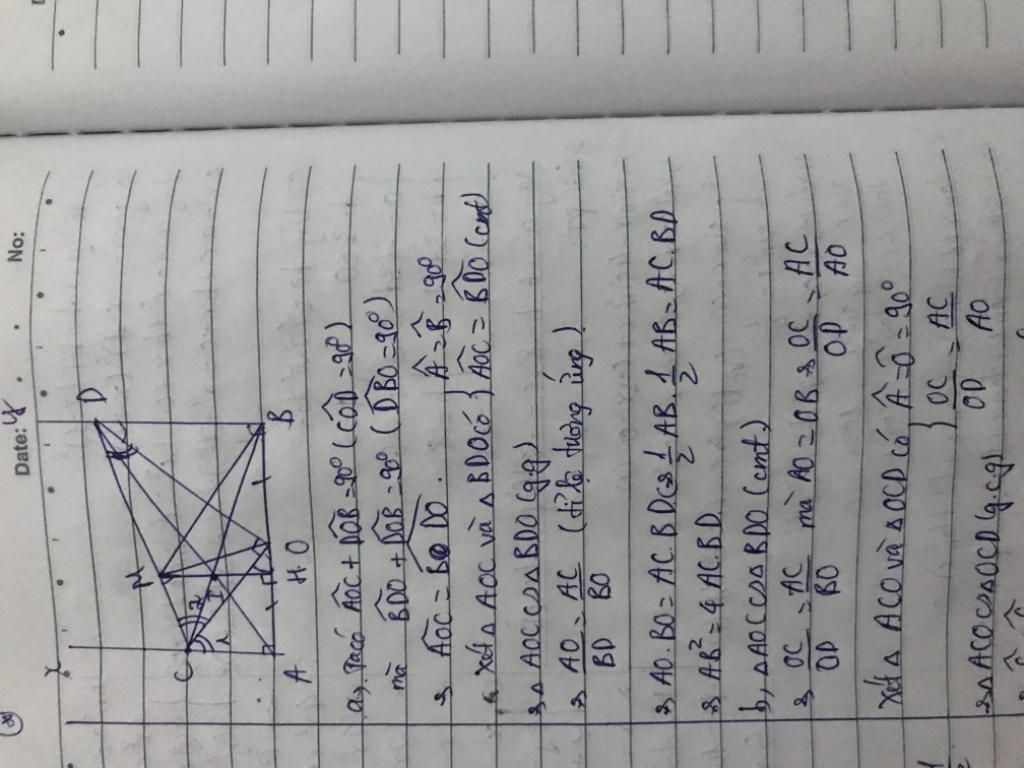 Date: y
No:
x
C
M
D
1
2
I
A
H
O
B
a, Ta có AÔC + DÔB = 90° (CÔD = 90°)
mà BD̂O + DÔB = 90° (DB̂O = 90°)
=> AÔC = BD̂O.
Xét △ AOC và △ BDO có { Â = B̂ = 90°
AÔC = BD̂O (cmt)
=> △ AOC ∽ △ BDO (g.g)
=> AO/BD = AC/BO (tỉ lệ tương ứng)
=> AO.BO = AC.BD => 1/2 AB. 1/2 AB = AC.BD
=> AB² = 4 AC.BD.
b, △AOC ∽ △ BDO (cmt)
=> OC/OD = AC/BO mà AO = OB => OC/OD = AC/AO
Xét △ ACO và △ OCD có { Â = Ô = 90°
OC/OD = AC/AO
=> △ ACO ∽ △OCD (g.c.g)